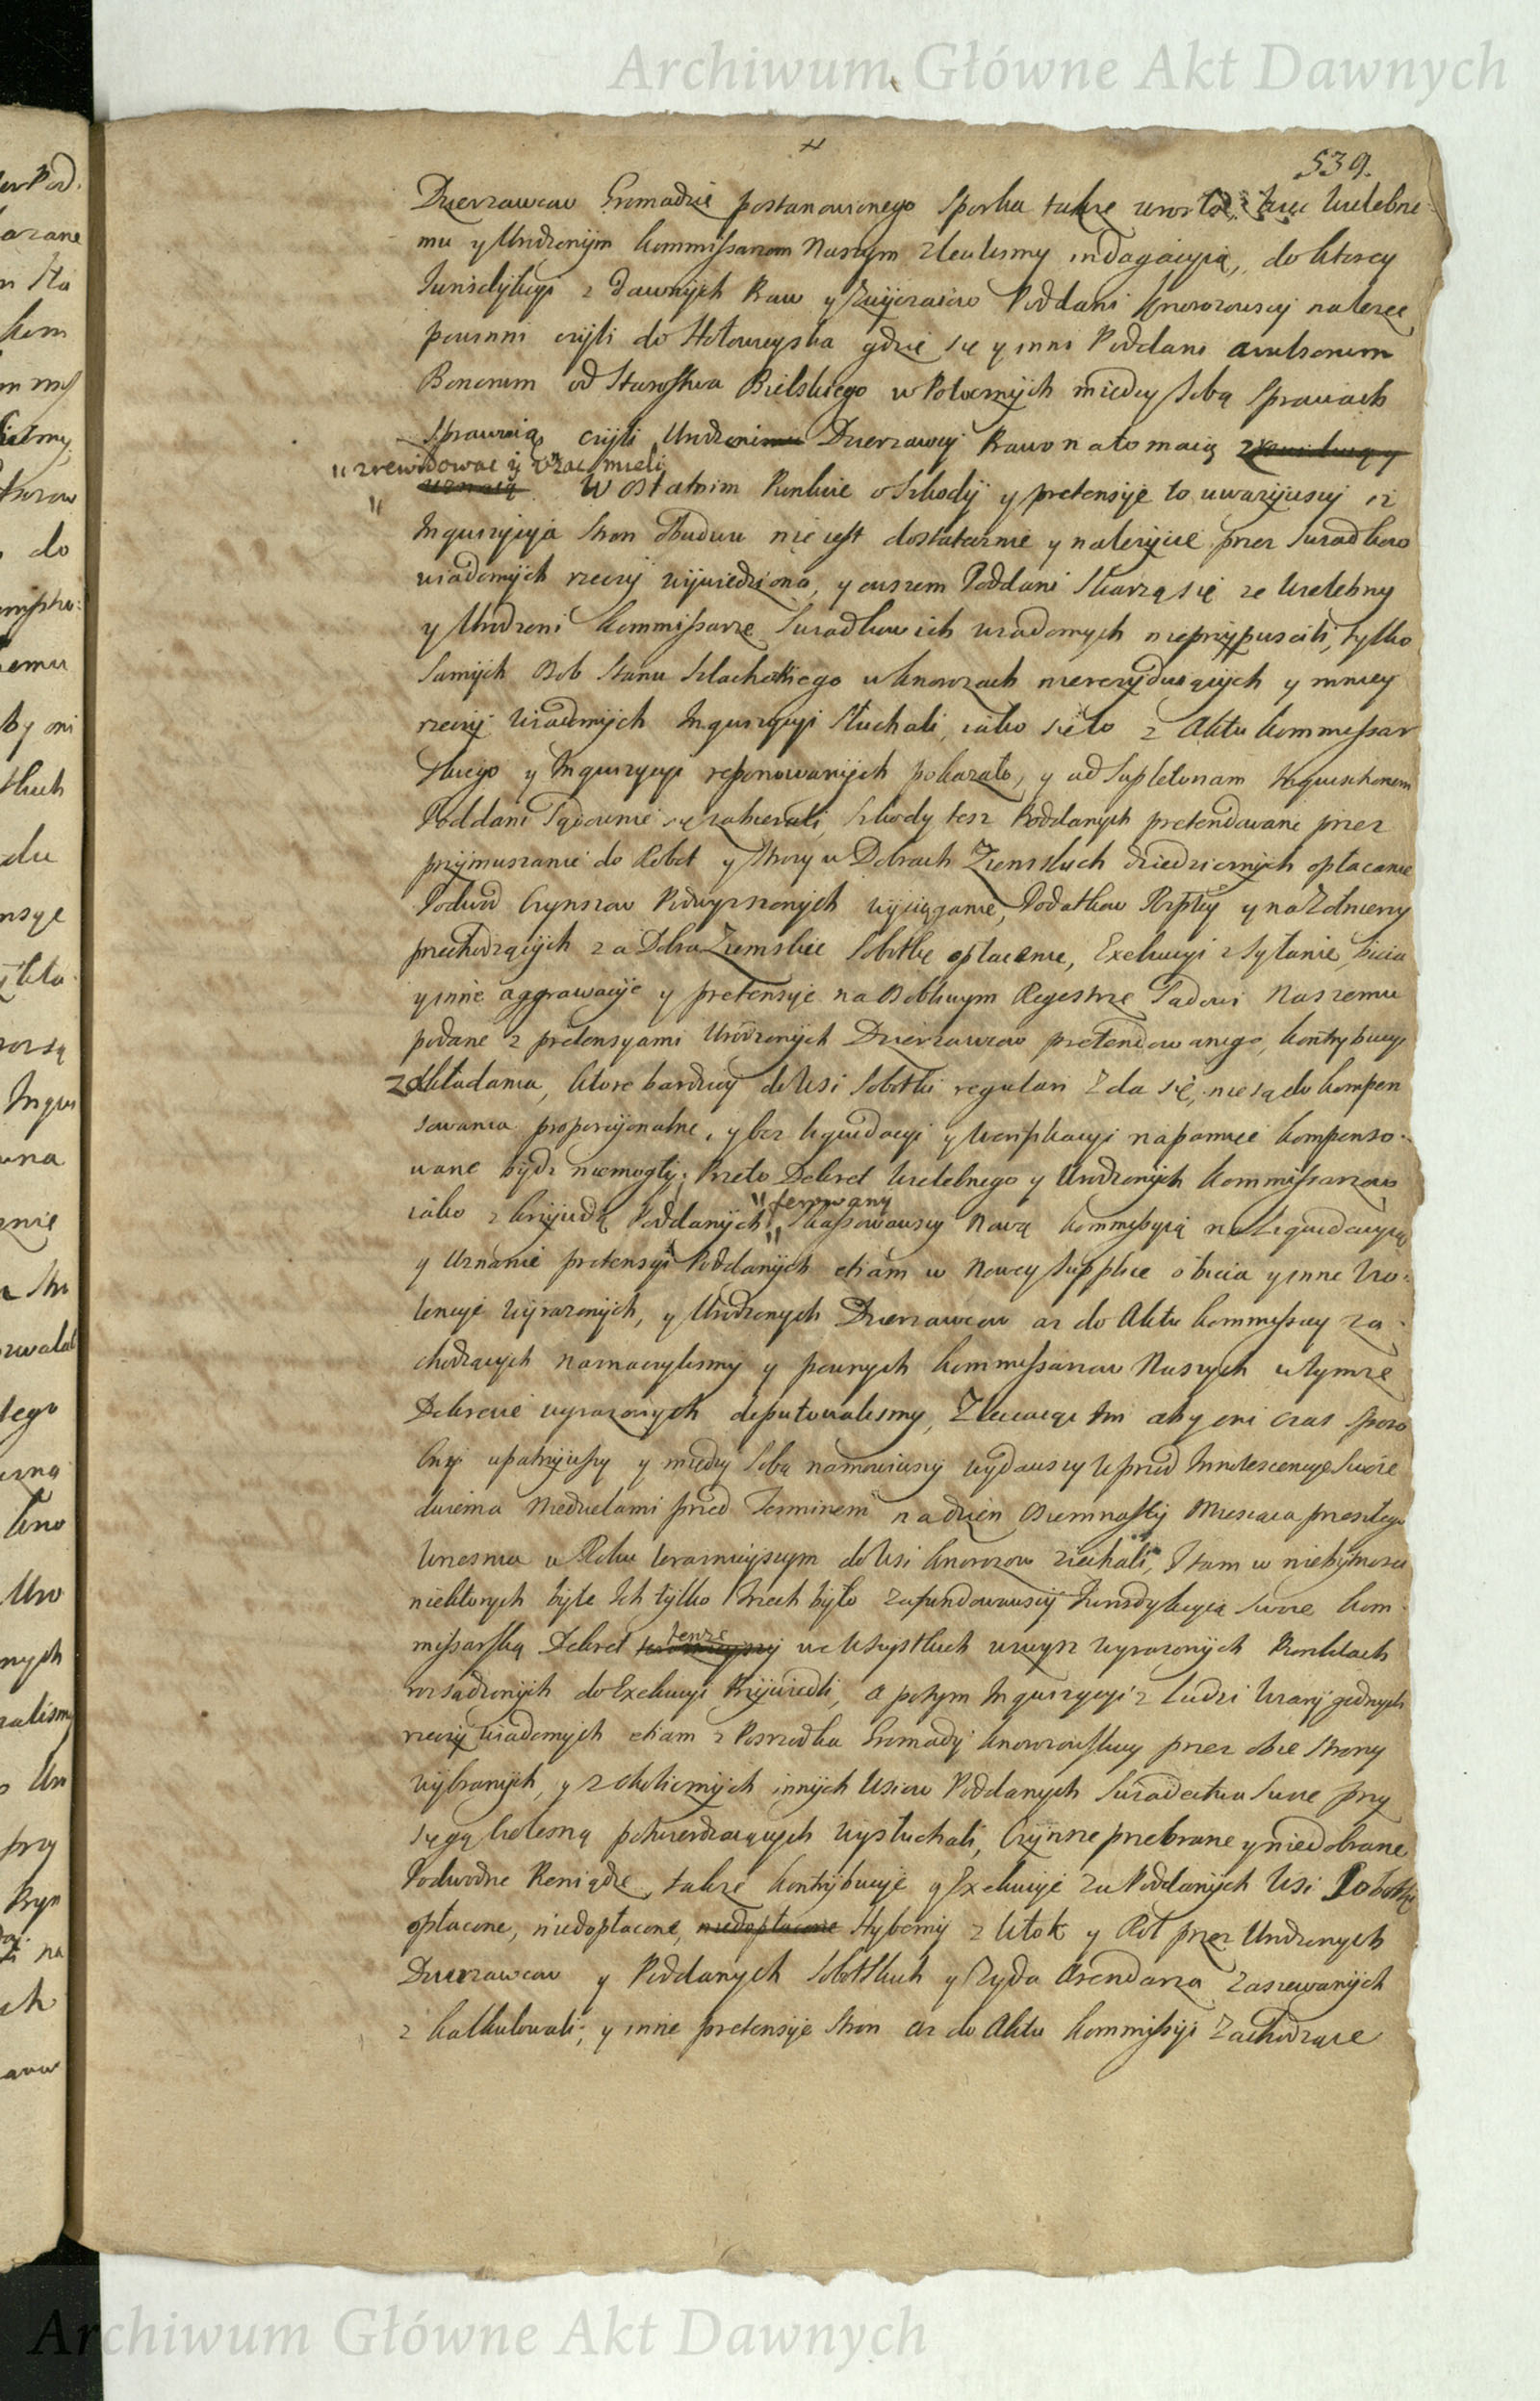 Archiwum Główne Akt Dawnych
539.
Dzierzawcow Gromadzie postanowionego Sporka także więc Wielebne-
mu y Urodzonym Kommissarzom Naszym zleciliśmy indagacyią, do ktorey
Jurisdykcyi z dawnych Praw y Zwyczaiow Poddani Knorozowscy należeć
powinni czyli do Hołowieyska gdzie się y inni Poddani avulsorum
Bonorum od Starostwa Bielskiego w Potocznych między Sobą Sprawach
Sprawuią, czyli Urodzeni Dzierzawcy Prawo na to maią
" zrewidować y uznać mieli
" W ostatnim Punkcie o Szkody y pretensyie to uważywszy iż
Inquizycyia Stron Obudwu nie iest dostatecznie y należycie przez Swiadkow
wiadomych rzeczy wywiedziona, y owszem Poddani Skarzą się ze Wielebny
y Urodzeni Kommissarze Swiadkow ich wiadomych nieprzypuscili, tylko
Samych Osob Stanu Szlacheckiego w Knorozach nierezyduiących y mniey
rzeczy wiadomych Inquizycyi Słuchali, iako się to z Aktu Kommissar
skiego y Inquizycyi reponowanych pokazało, y ad Supletoriam Inquisitionem
Poddani Sądownie się zabierali, Szkody tesz Poddanych pretendowane przez
przymuszanie do Robot y Strozy w Dobrach Ziemskich dziedzicznych opłacanie
Podwod Czynszow Podwyzszonych wyciąganie, Podatkow Rzpltey y na Zołnierzy
przechodzących za Dobra Ziemskie Sobotkę opłacenie, Exekucyi zsyłanie, bicia
y inne aggrawacyie y pretensyie na Osobliwym Regestrze Sądowi Naszemu
podane z pretensyami Urodzonych Dzierzawcow pretendowanego, kontrybucyi
zakładania, ktore bardziey do Wsi Sobotki regulari zda się, nie są do kompen
sowania proporcyionalne, y bez liquidacyi y weryfikacyi na pamięć kompenso-
wane bydz niemogły; Przeto Dekret Wielebnego y Urodzonych Kommissarzow
iako z krzywdą Poddanych " ferowany " Skassowawszy Nową Kommissyią na Liquidacyią
y Uznanie pretensyi Poddanych etiam w Nowey Supplice o bicia y inne Wio-
lencyie wyrażonych, y Urodzonych Dzierzawcow az do Aktu Kommissyi za-
chodzących naznaczyliśmy y pewnych Kommissarzow Naszych w tymze
Dekrecie wyrazonych deputowaliśmy, Zlecaiąc Im aby oni czas sposo
bny upatrzywszy y między Sobą namowiwszy wydawszy wprzod Innotescencyie Swoie
dwiema Niedzielami przed Terminem na dzień Osiemnasty Miesiąca przeszłego
Wrzesnia w Roku teraznieyszym do Wsi Knorozow ziechali, Y tam w niebytnosci
niektorych byle Ich tylko trzech było zafundowawszy Jurisdykcyią Swoie Kom-
missarską Dekret tenże we Wszystkich wwyz wyrazonych Punktach
rozsądzonych do Exekucyi Przywiedli, a potym Inquizycyi z Ludzi Wiary godnych
rzeczy wiadomych etiam z Posrzodka Gromady Knorozowskiey przez obie Strony
wybranych, y z okolicznych innych Wsiow Poddanych Swiadectwa Swe przy
sięgą cielesną potwierdzaiących wysłuchali, Czynsze przebrane y niedobrane
Podwodne Pieniądze, także kontrybucyie y Exekucyie za Poddanych Wsi Sobotki
opłacone, niedopłacone, niedopłacone Hyberny z Włok y Rol przez Urodzonych
Dzierzawcow y Poddanych Sobotskich y Zyda Arendarza Zasiewanych
z kalkulowali; y inne pretensyie Stron az do Aktu Kommissyi Zachodzące
Archiwum Główne Akt Dawnych